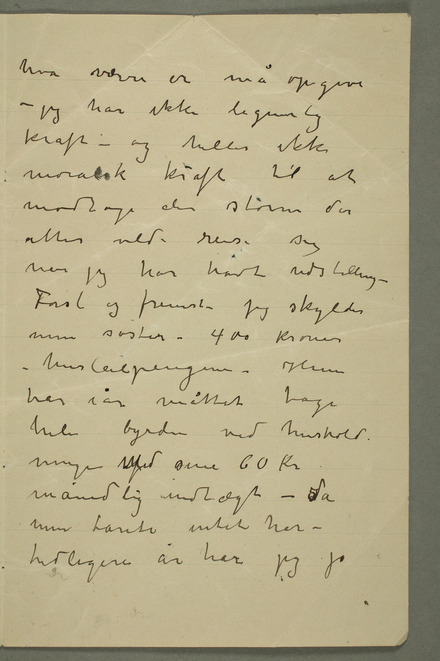 hva værre er må opgive
– jeg har ikke legemlig
kraft – og heller ikke
moralsk kraft til at
modtage den storm der
atter vilde reise sig
når jeg har havt udstilling –
Først og fremst – jeg skylder
min søster – 400 kroner
– husleiepengene – Hun
har i år måttet tage
hele byrden ved hushold-
ningen Med sine 60 Kr
månedlig indtægt – Da
min tante intet har –
tidligere år har jeg jo